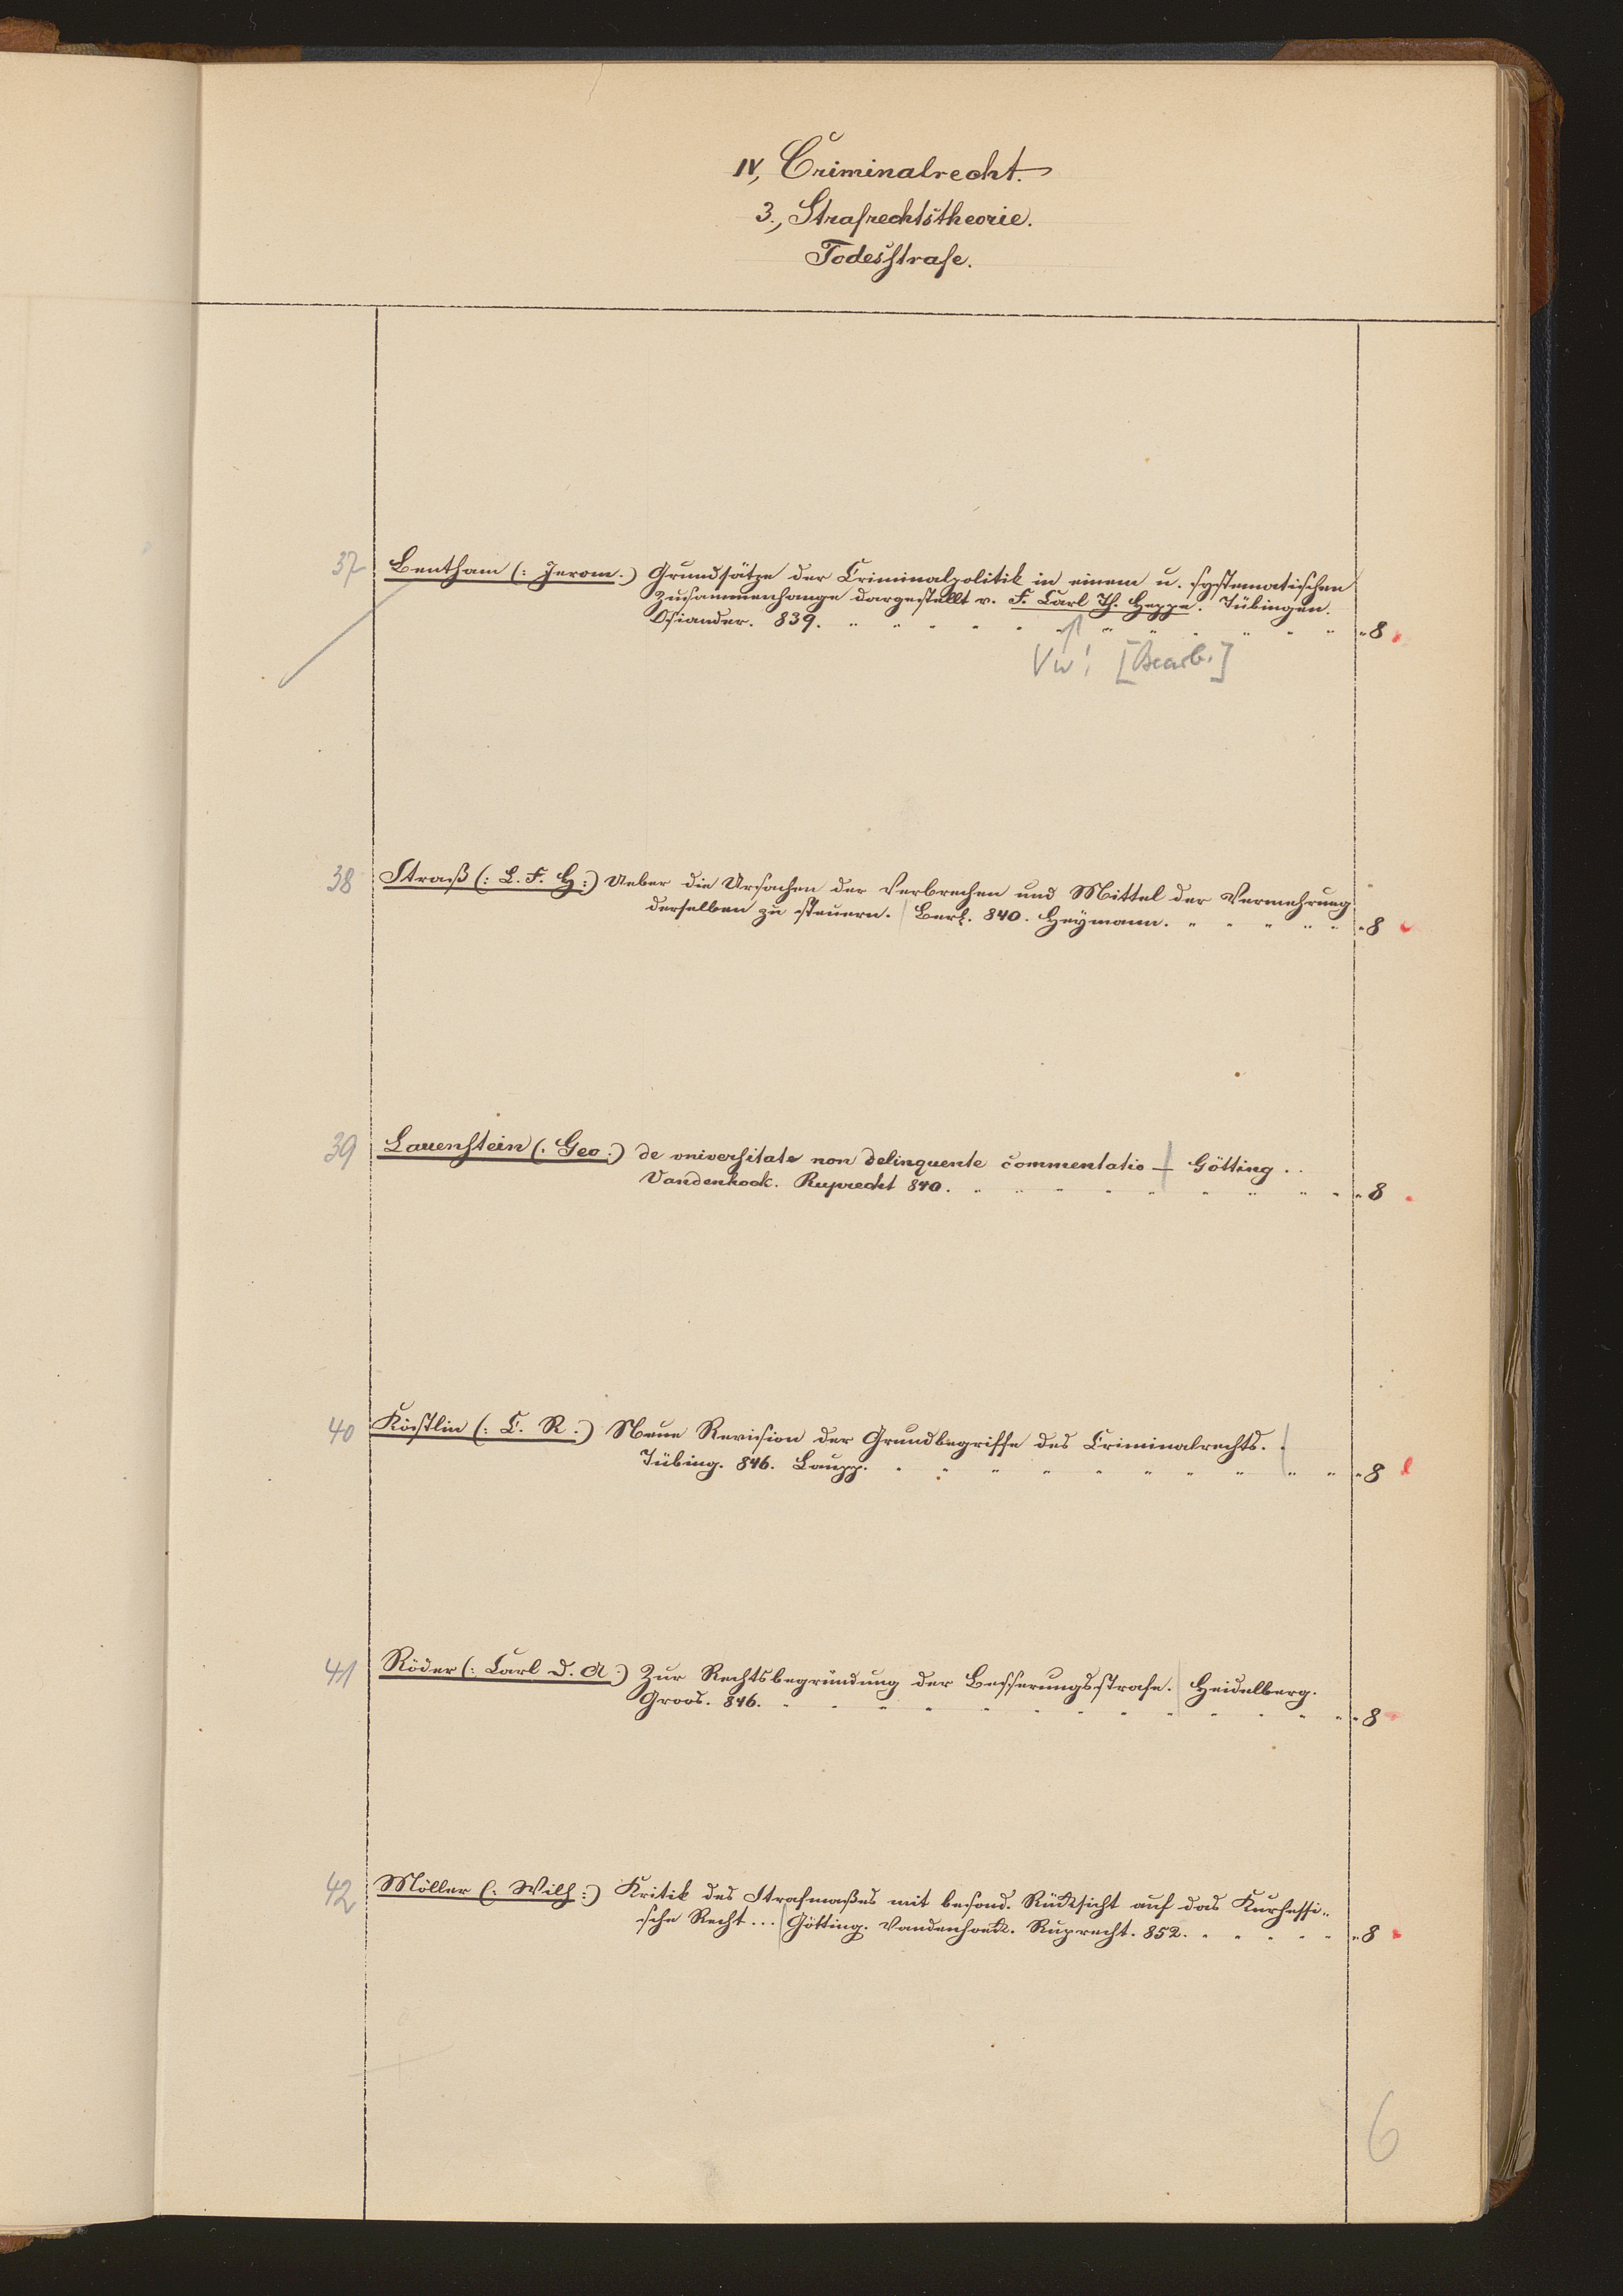 IV, Criminalrecht.
3., Strafrechtstheorie.
Todesstrafe.
37 Bentham (: Jerom.) Grundsätze der Criminalpolitik in einem u. systematischen
Zusammenhange dargestellt v. F. Carl Th. Heppe. Tübingen.
Osiander. 839. " 8
Vw! [Bearb.]
38 Straß (: L. F. H:) Ueber die Ursachen der Verbrechen und Mittel der Vermehrung
derselben zu steuern. Berl. 840. Heymann. " 8
39 Lauenstein (: Geo:) de vniversitate non delinquente commentatio — Götting..
Vandenhoek. Ruprecht 840. " 8
40 Köstlin (: C. R.) Neue Revision der Grundbegriffe des Criminalrechts.
Tübing. 846. Laupp. " 8
41 Röder (: Carl D. A.) Zur Rechtsbegründung der Besserungsstrafe. Heidelberg.
Groos. 846. " 8
42 Möller (: Wilh:) Kritik des Strafmaßes mit besond. Rücksicht auf das Kurhessi-
sche Recht... Götting. Vandenhoek. Ruprecht. 852. " 8
6